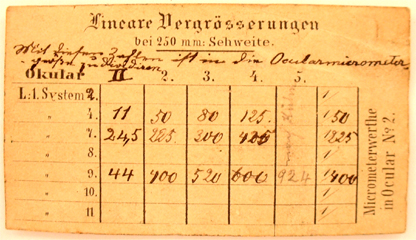 Lineare Vergrösserungen
bei 250 mm: Sehweite.
Mit diesen Zahlen ist in die Ocularmicrometer-
größe zu dividiren
Okular II 2. 3. 4. 5.
L: 1. System 2.
„ 4. 11 50 80 125. 1/50
„ 7. 245 300 1/225
„ 8.
„ 9. 44 400 520 600 924 1/400
„ 10.
„ 11
Micrometerwerthe
in Ocular No 2.